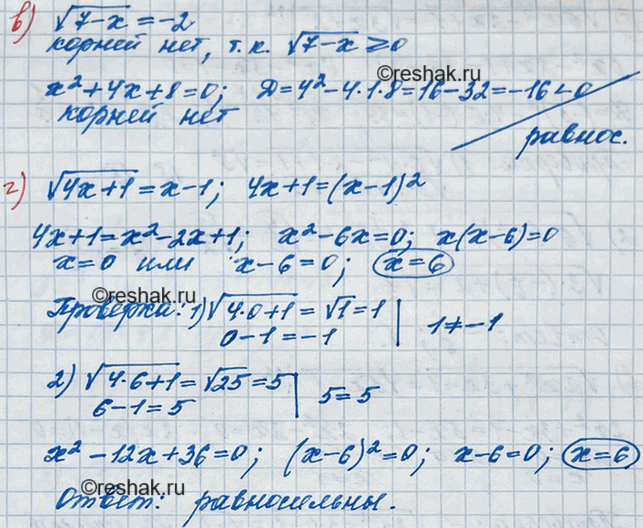 в) √(7-x) = -2
корней нет, т.к. √(7-x) ≥ 0
©reshak.ru
x² + 4x + 8 = 0; Д = 4² - 4·1·8 = 16 - 32 = -16 < 0
корней нет
равнос.
г) √(4x+1) = x-1; 4x+1 = (x-1)²
4x+1 = x² - 2x + 1; x² - 6x = 0; x(x-6) = 0
x = 0 или x - 6 = 0; x = 6
©reshak.ru
Проверка: 1) √(4·0+1) = √1 = 1 | 1 ≠ -1
0 - 1 = -1
2) √(4·6+1) = √25 = 5 | 5 = 5
6 - 1 = 5
x² - 12x + 36 = 0; (x-6)² = 0; x - 6 = 0; x = 6
©reshak.ru
Ответ: равносильны.